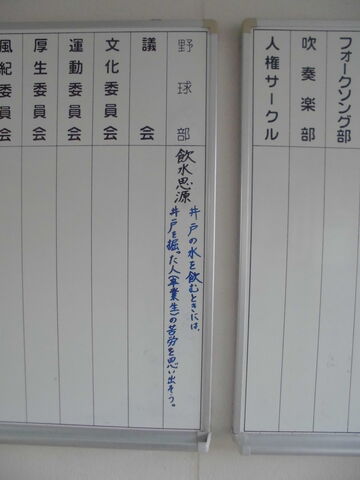 フォークソング部
吹奏楽部
人権サークル
野球部
飲水思源
井戸の水を飲むときには、
井戸を掘った人(卒業生)の苦労を思い出そう。
議会
文化委員会
運動委員会
厚生委員会
風紀委員会